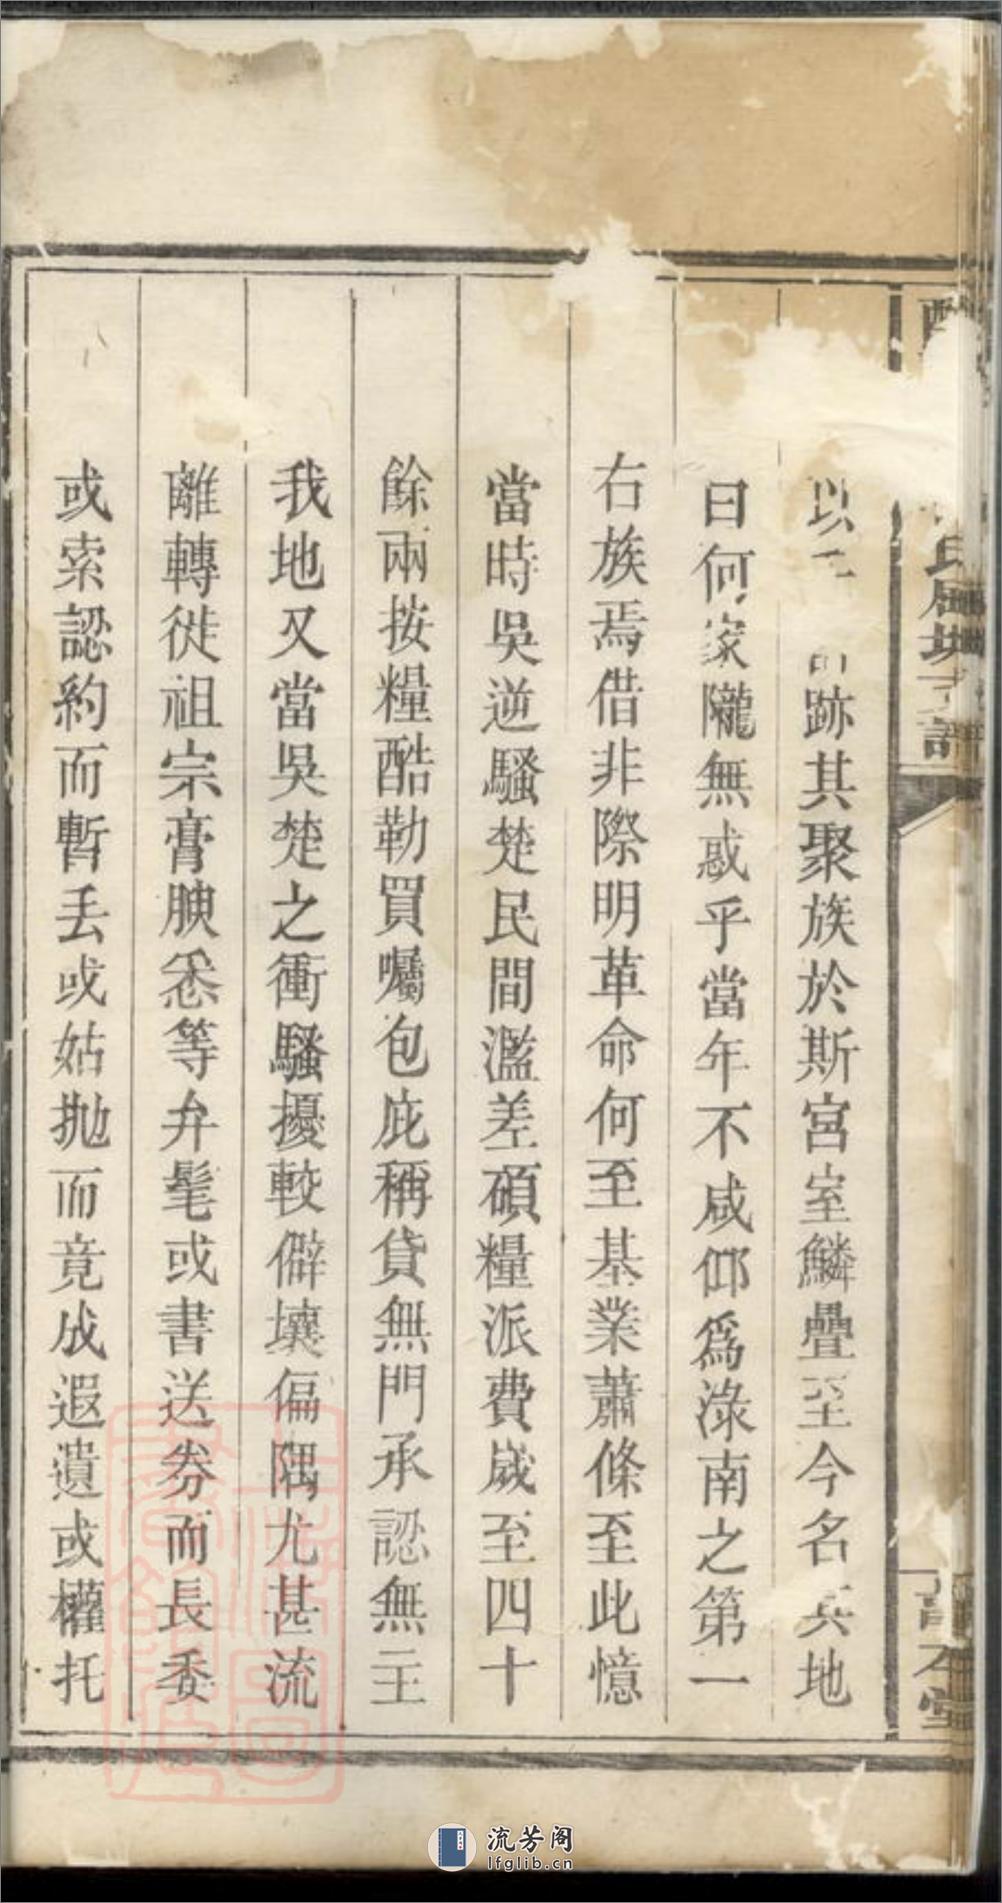 以 跡其聚族於斯宮室鱗疊至今名其地
曰何家隴無惑乎當年不咸仰為淥南之第一
右族焉借非際明革命何至基業蕭條至此憶
當時吳逆騷楚民間濫差碩糧派費歲至四十
餘兩按糧酷勒買囑包庇稱貸無門承認無主
我地又當吳楚之衝騷擾較僻壤偏隅尤甚流
離轉徙祖宗膏腴悉等弁髦或書送券而長委
或索認約而暫丟或姑拋而竟成遐遺或權托
流芳阁
lfglib.cn